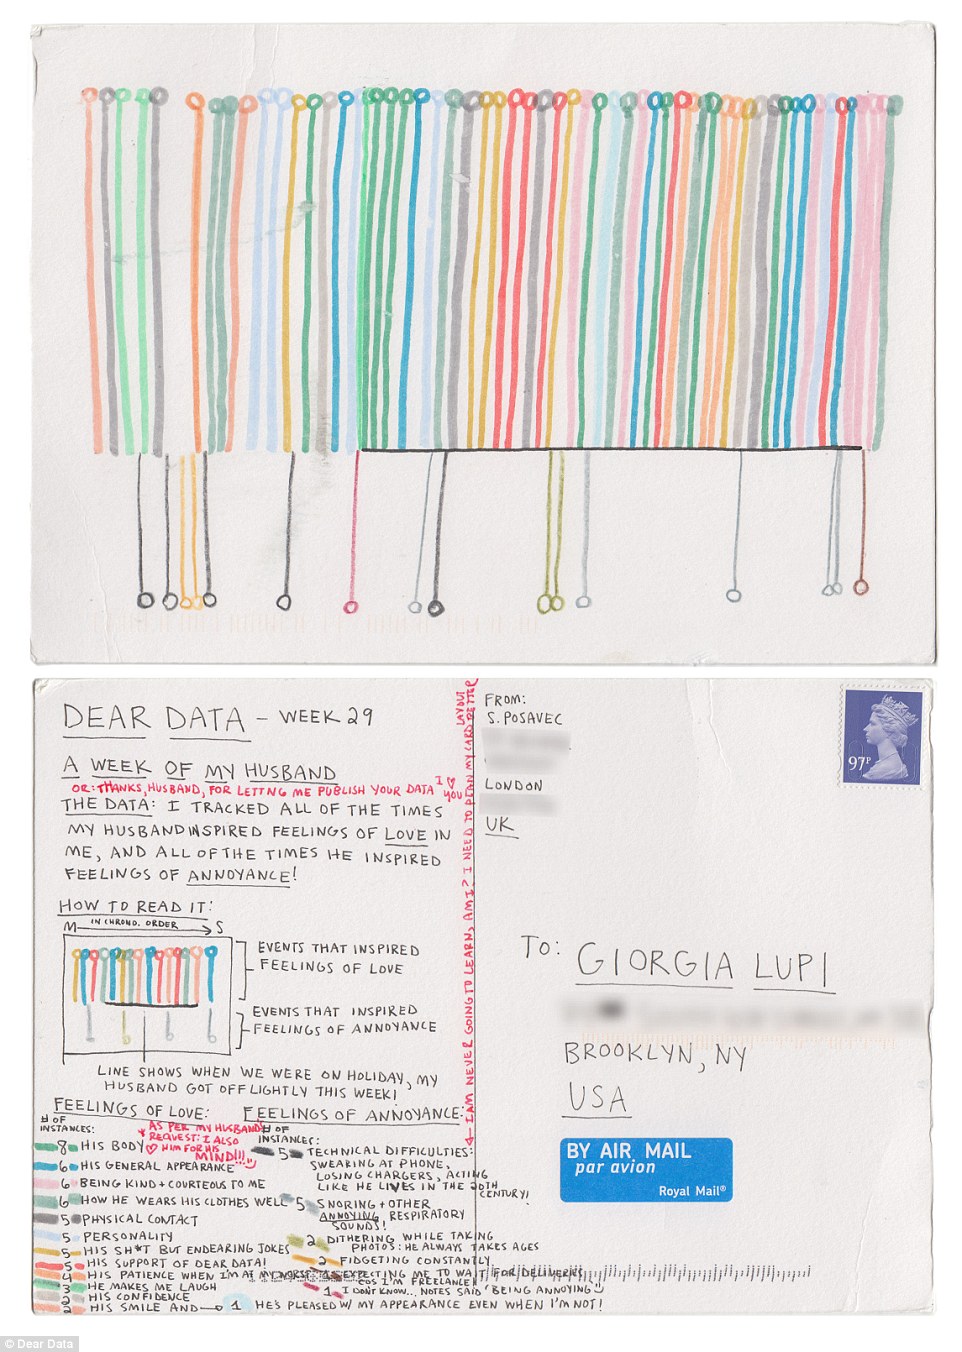 DEAR DATA - WEEK 29
A WEEK OF MY HUSBAND
OR: THANKS, HUSBAND, FOR LETTING ME PUBLISH YOUR DATA I ♡ YOU
THE DATA: I TRACKED ALL OF THE TIMES
MY HUSBAND INSPIRED FEELINGS OF LOVE IN
ME, AND ALL OF THE TIMES HE INSPIRED
FEELINGS OF ANNOYANCE!
HOW TO READ IT:
M IN CHRONO. ORDER S
EVENTS THAT INSPIRED
FEELINGS OF LOVE
EVENTS THAT INSPIRED
FEELINGS OF ANNOYANCE
LINE SHOWS WHEN WE WERE ON HOLIDAY, MY
HUSBAND GOT OFF LIGHTLY THIS WEEK!
FEELINGS OF LOVE:
# OF
INSTANCES:
* AS PER MY HUSBAND'S
REQUEST: I ALSO
♡ HIM FOR HIS
MIND!!!
8 HIS BODY
6 HIS GENERAL APPEARANCE
6 BEING KIND + COURTEOUS TO ME
6 HOW HE WEARS HIS CLOTHES WELL
5 PHYSICAL CONTACT
5 PERSONALITY
5 HIS SH*T BUT ENDEARING JOKES
5 HIS SUPPORT OF DEAR DATA!
4 HIS PATIENCE WHEN I'M AT MY WORST
3 HE MAKES ME LAUGH
2 HIS CONFIDENCE
2 HIS SMILE AND → 1 HE'S PLEASED W/ MY APPEARANCE EVEN WHEN I'M NOT!
FEELINGS OF ANNOYANCE:
# OF
INSTANCES:
5 TECHNICAL DIFFICULTIES:
SWEARING AT PHONE,
LOSING CHARGERS, ACTING
LIKE HE LIVES IN THE 20TH
CENTURY!
5 SNORING + OTHER
ANNOYING RESPIRATORY
SOUNDS!
2 DITHERING WHILE TAKING
PHOTOS: HE ALWAYS TAKES AGES
2 FIDGETING CONSTANTLY
EXPECTING ME TO WAIT FOR DELIVERIES
COS I'M FREELANCE
1 I DON'T KNOW... NOTES SAID 'BEING ANNOYING'
← I AM NEVER GOING TO LEARN, AM I? I NEED TO PLAN MY CARD BETTER
LAYOUT
FROM:
S. POSAVEC
LONDON
UK
97P
TO: GIORGIA LUPI
BROOKLYN, NY
USA
BY AIR MAIL
par avion
Royal Mail®
© Dear Data